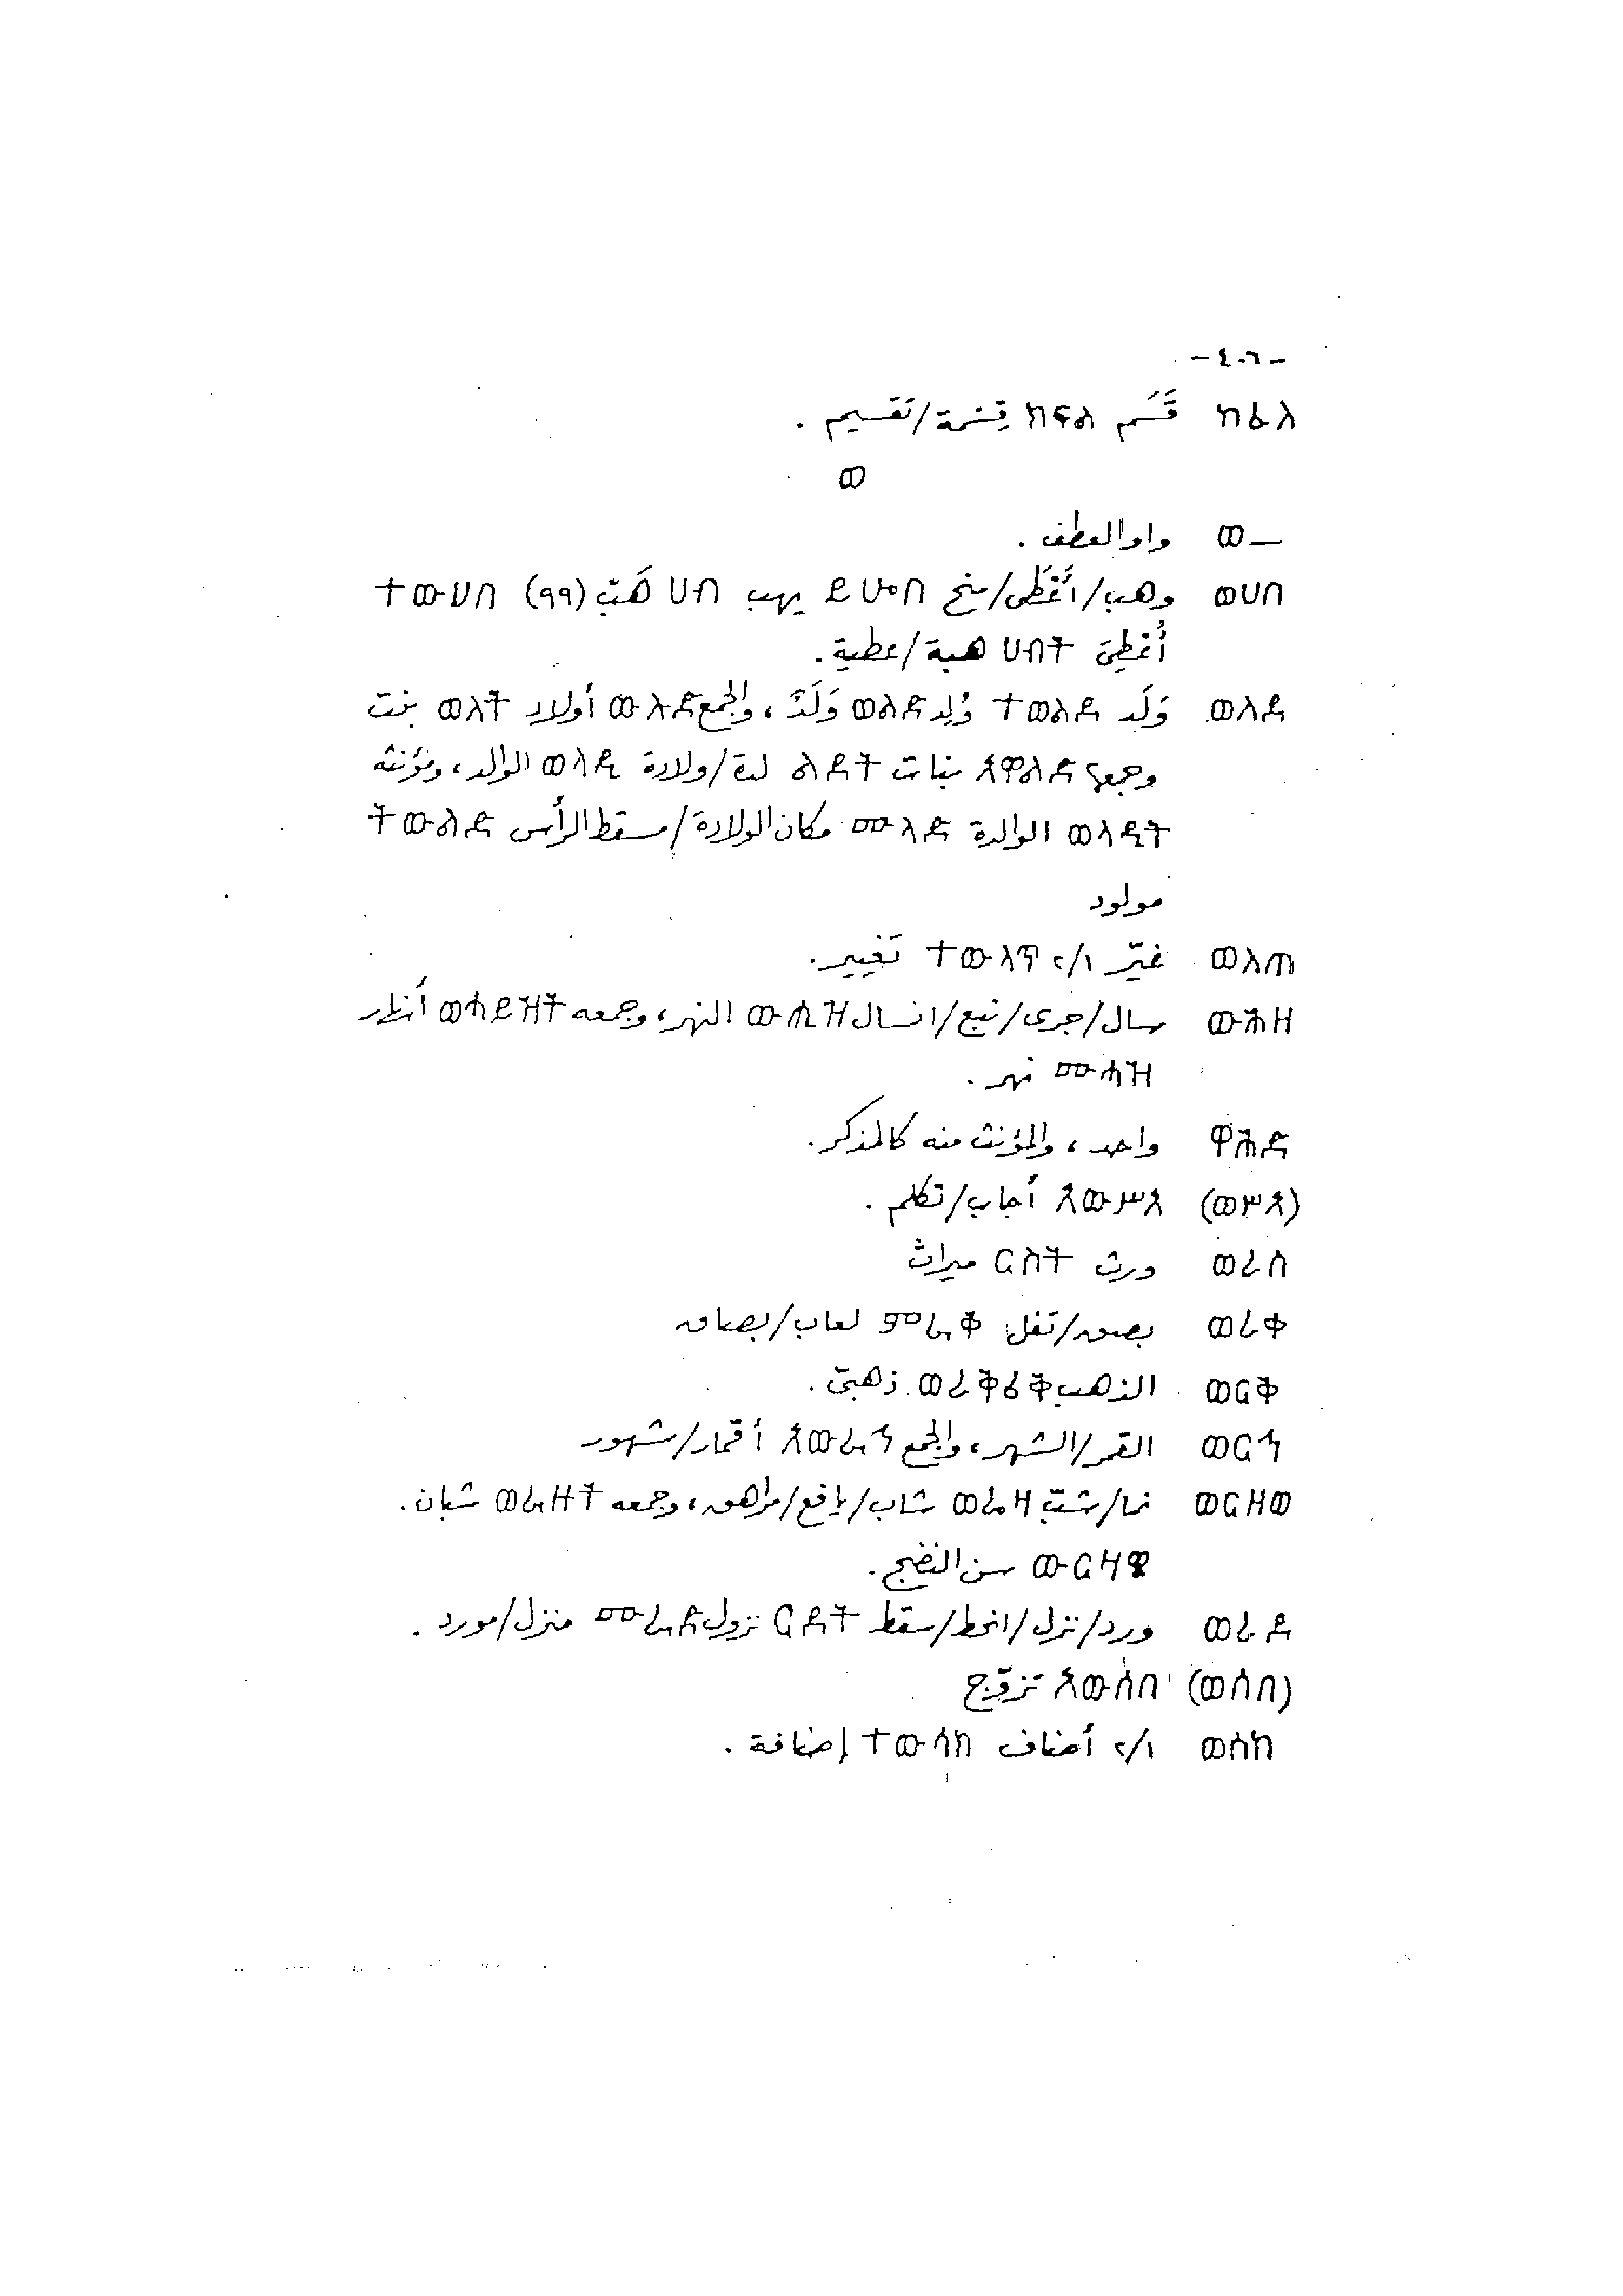 - ٤٠٦ -
ከፈለ قَسَّم ክፍል قِسْمة/تَقسيم .
ወ
ወ— واو العطف .
ወሀበ وهب/أَعْطَى/منح ይሁብ يهب ሀብ هَبْ (٩٩) ተውህበ
أُعْطِيَ ሀብት هبة/عطية.
ወለደ وَلَد ተወልደ وُلِد ወልድ وَلَدٌ، والجمع ውሉድ أولاد ወለት بنت
وجمعها አዋልድ بنات ልደት لدة/ولادة ወላዲ الوالد، ومؤنثه
ወላዲት الوالدة ሙላድ مكان الولادة/مسقط الرأس ትውልድ
مولود
ወለጠ غيّر ١/٢ ተውላጥ تَغيير.
ውሕዘ سال/جرى/نبع/انسال ውሒዝ النهر، وجمعه ወሓይዝት أنظر
ሙሓዝ نهر.
ዋሕድ واحد، والمؤنث منه كالمذكر.
(ወሥአ) አውሥአ أجاب/تكلم .
ወረሰ ورث ርስት ميراث
ወረቀ بصق/تفل ምራቅ لعاب/بصاق
ወርቅ الذهب ወረቅረቅ ذهبيّ .
ወርኅ القمر/الشهر، والجمع አውራኅ أقمار/شهور
ወርዘወ نما/شبّ ወሬዛ شاب/يافع/مراهق، وجمعه ወራዝት شبان.
ውርዛዌ سن النضج.
ወረደ ورد/نزل/انحط/سقط ርደት نزول ሙራድ منزل/مورد .
(ወሰበ) አውሰበ تزوّج
ወሰከ ١/٢ أضاف ተውሳክ إضافة .